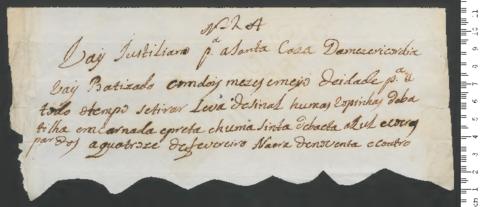 Nº 24
Vay Justiliano p.ª a Santa Caza Damezericordia
Vay Batizado com dois mezes emeyo deidade p.ª a
todo otempo setirar Leva desinal humas Roupinhas deba
tilha emCarnada epreta ehuma sinta debaeta azul ecoros
pardos aquatroze defevereiro Naera denoventa ecoatro